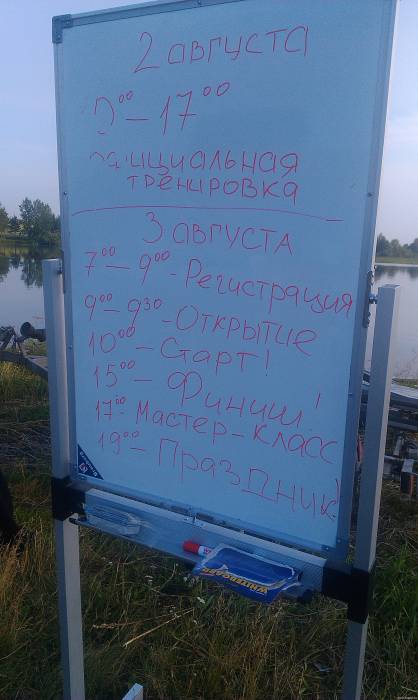 2 августа
9⁰⁰ – 17⁰⁰
официальная
тренировка
3 августа
7⁰⁰ – 9⁰⁰ - Регистрация
9⁰⁰ – 9³⁰ - Открытие
10⁰⁰ – Старт!
15⁰⁰ – Финиш!
17⁰⁰ - Мастер-класс
19⁰⁰ – Праздник!
WHITEBOARD